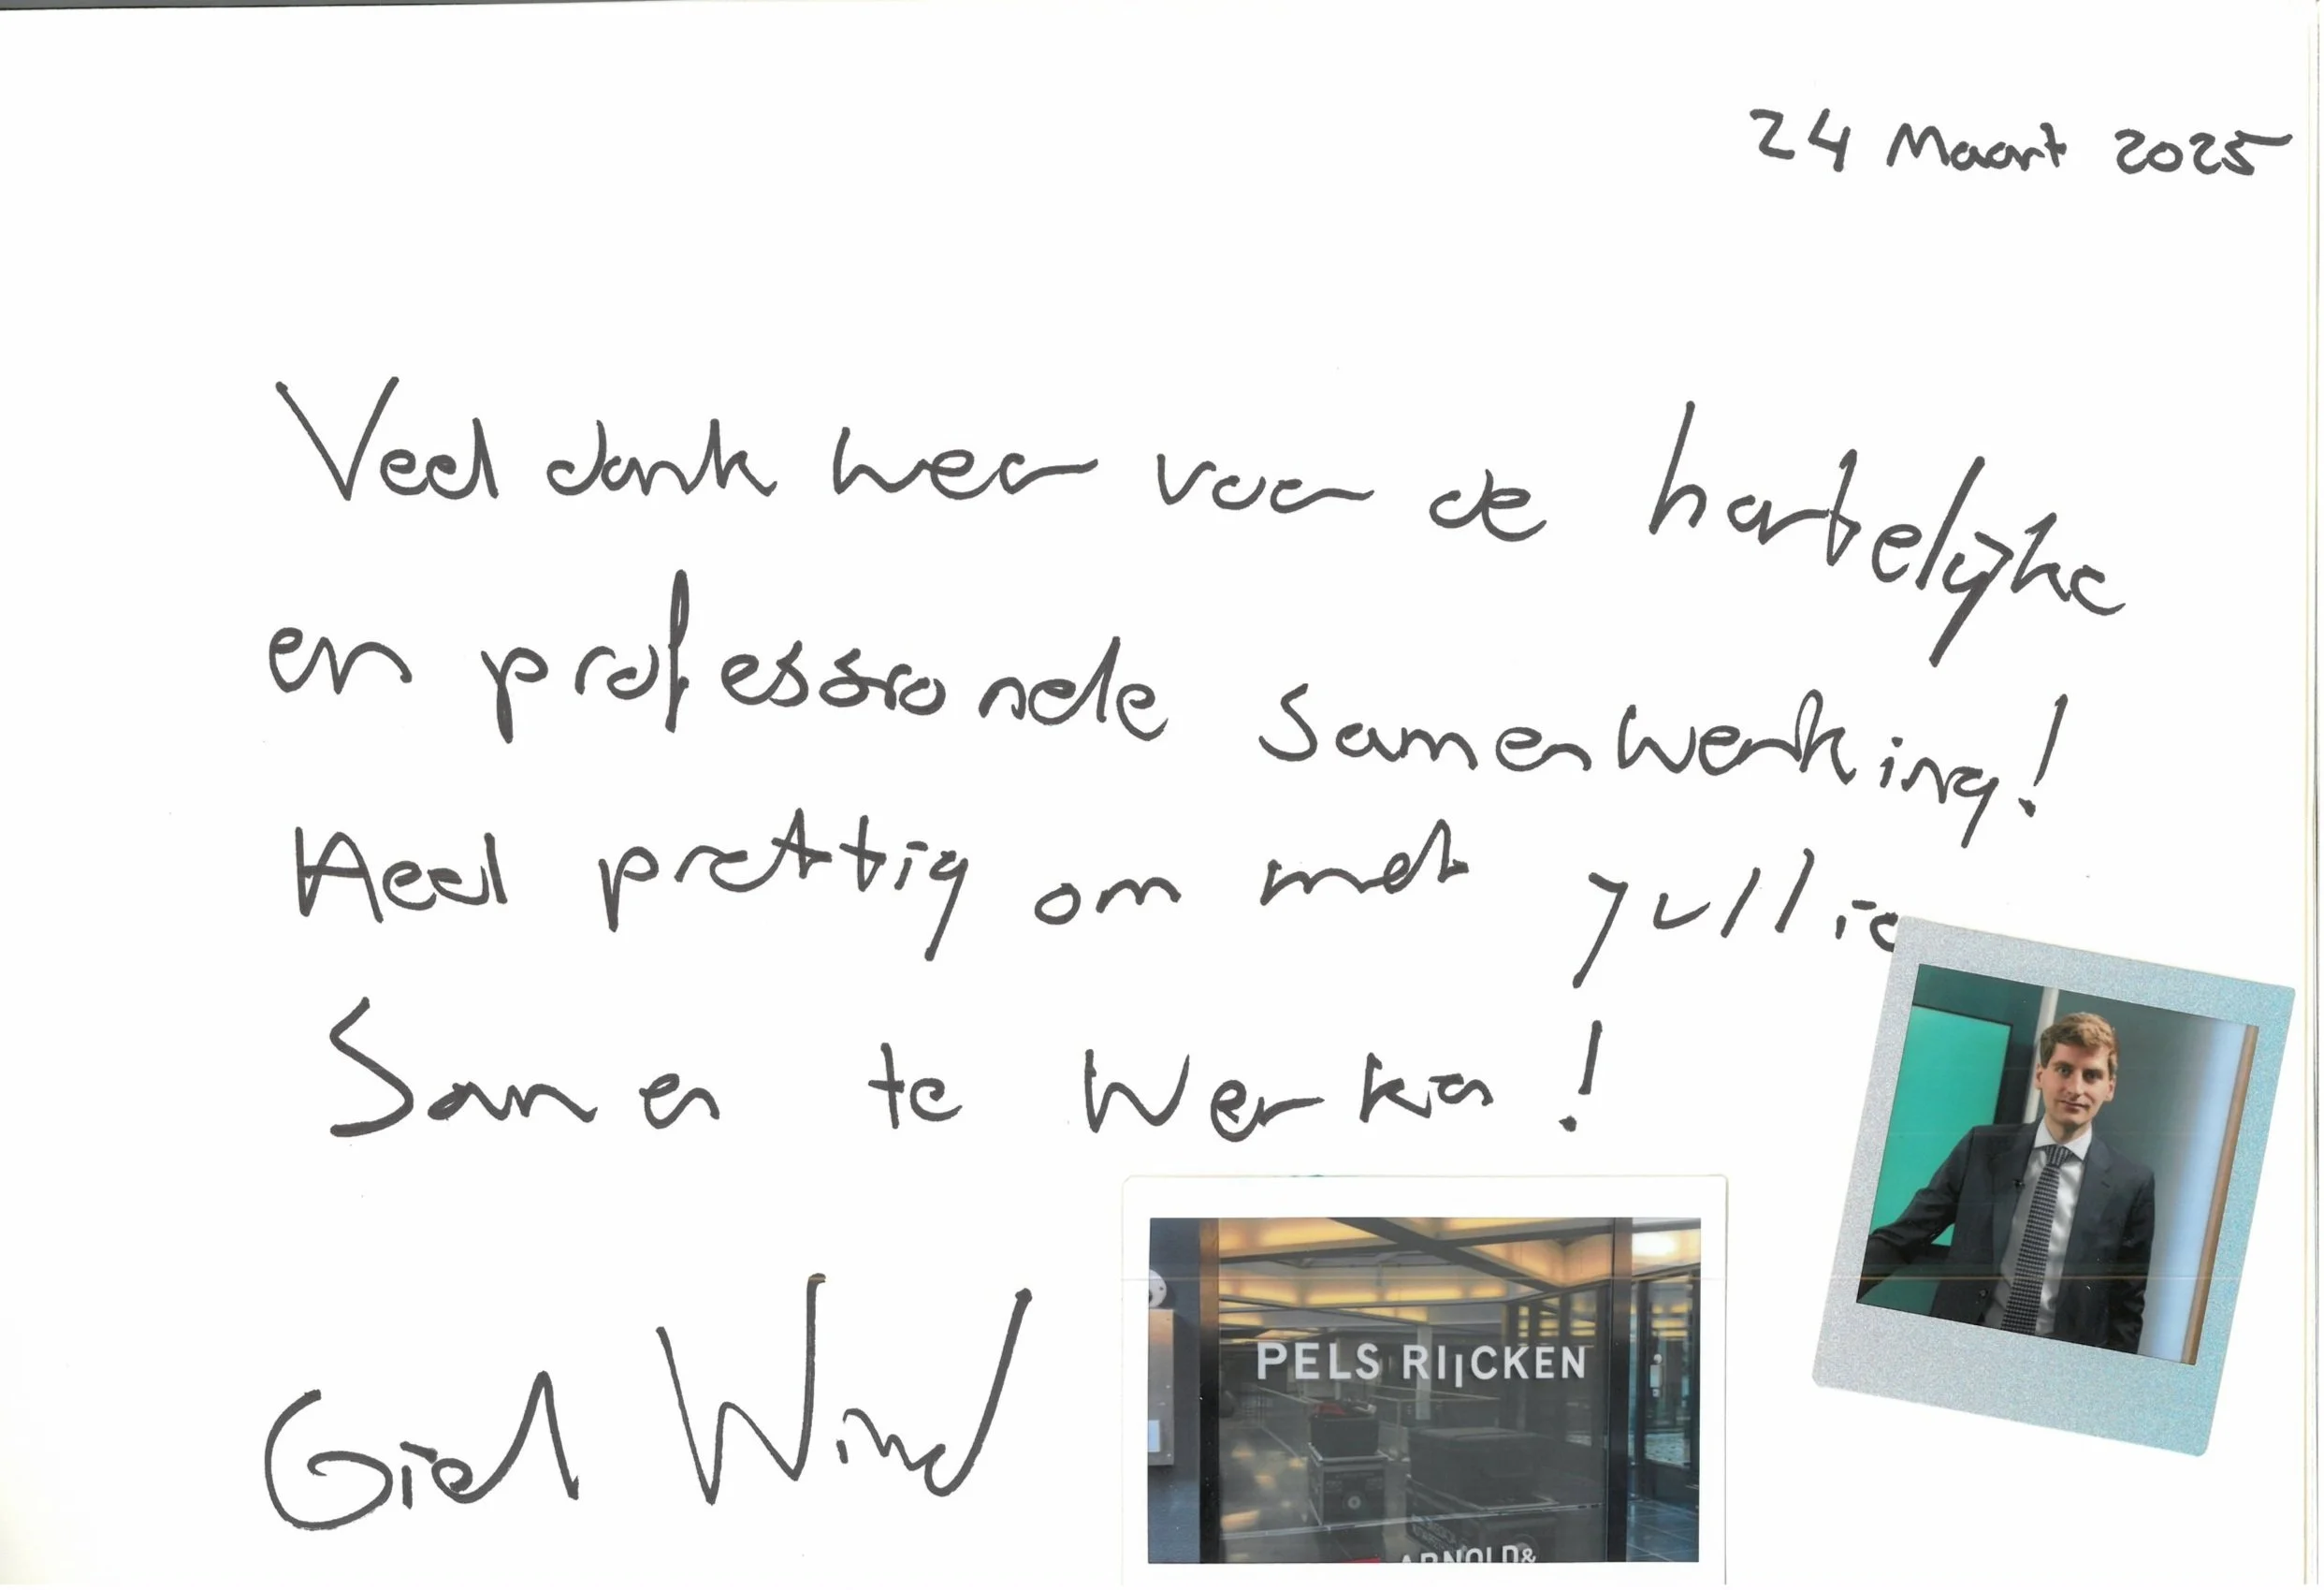 24 Maart 2025
Veel dank weer voor de hartelijke
en professionele samenwerking!
Heel prettig om met jullie
Samen te werken!
Giel Wind
PELS RIJCKEN
ARNOLD&